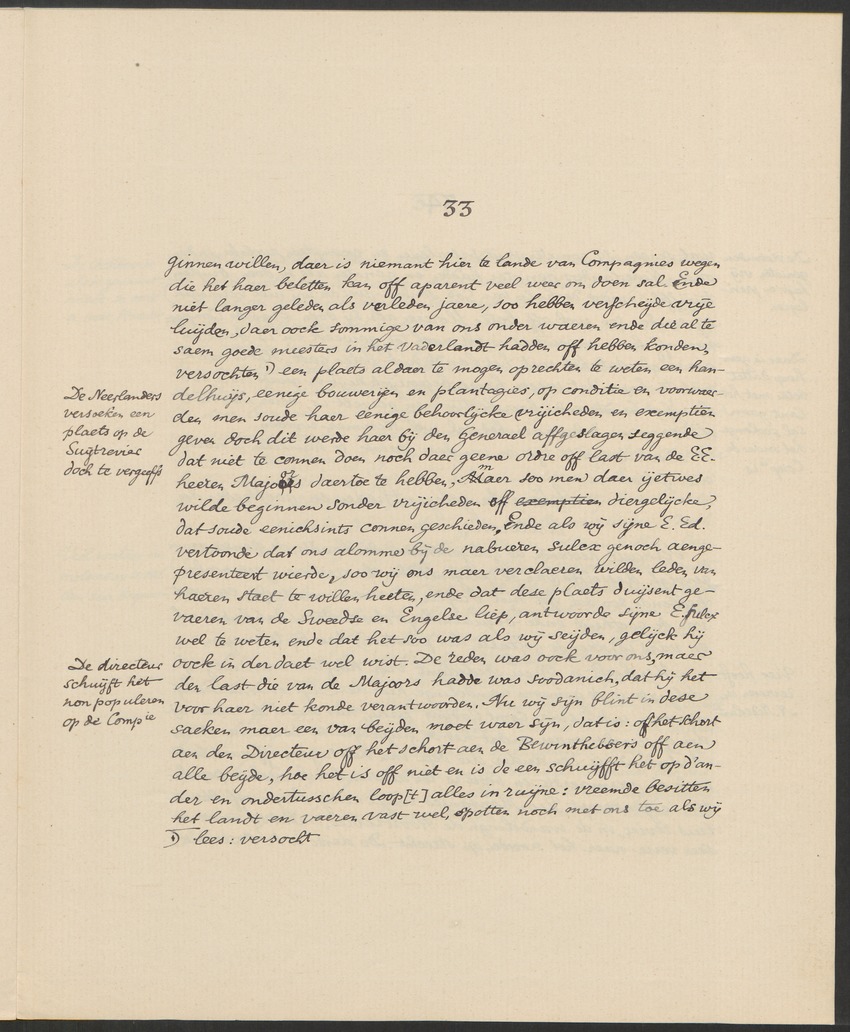 33
ginnen willen, daer is niemant hier te lande van Compagnies wegen
die het haer beletten kan off aparent veel weer om doen sal. Ende
niet langer geleden als verleden jaere, soo hebben verscheyde vrije
luijden, daer oock sommige van ons onder waeren ende die al te
saem goede meesters in het vaderlandt hadden off hebben konden,
versochten 1) een plaets aldaer te mogen oprechten te weten een han-
De Neerlanders
versoeken een
plaets op de
Suijtrevier
doch te vergeeffs
delhuijs, eenige bouwerijen en plantagies, op conditie en voorwaer-
den men soude haer eenige behoorlijcke vrijicheden en exemptien
geven doch dit werde haer bij den Generael affgeslagen seggende
dat niet te connen doen noch daer geene ordre off last van de EE.
heeren Majors daertoe te hebben, maer soo men daer ijetwes
wilde beginnen sonder vrijicheden off exemptien diergelijcke,
dat soude eenichsints connen geschieden, Ende als wij sijne E. Ed.
vertoonde dat ons alomme bij de nabueren sulcx genoch aenge-
presenteert wierde, soo wij ons maer verclaeren wilden leden van
haeren staet te willen heeten, ende dat dese plaets duijsent ge-
vaeren van de Sweedse en Engelse liep, antwoorde sijne E. sulcx
wel te weten ende dat het soo was als wij seijden, gelijck hij
De directeur
schuijft het
non populeren
op de Compie
oock in der daet wel wist. De reden was oock voor ons, maer
den last die van de Majoors hadde was soodanich, dat hij het
voor haer niet konde verantwoorden. Nu wij sijn blint in dese
saeken maer een van beijden moet waer sijn, dat is: of het schort
aen den Directeur off het schort aen de Bewinthebbers off aen
alle beijde, hoe het is off niet en is de een schuijfft het op d'an-
der en ondertusschen loop[t] alles in ruijne: vreemde besitten
het landt en vaeren vast wel, spotten noch met ons toe als wij
1) lees: versocht